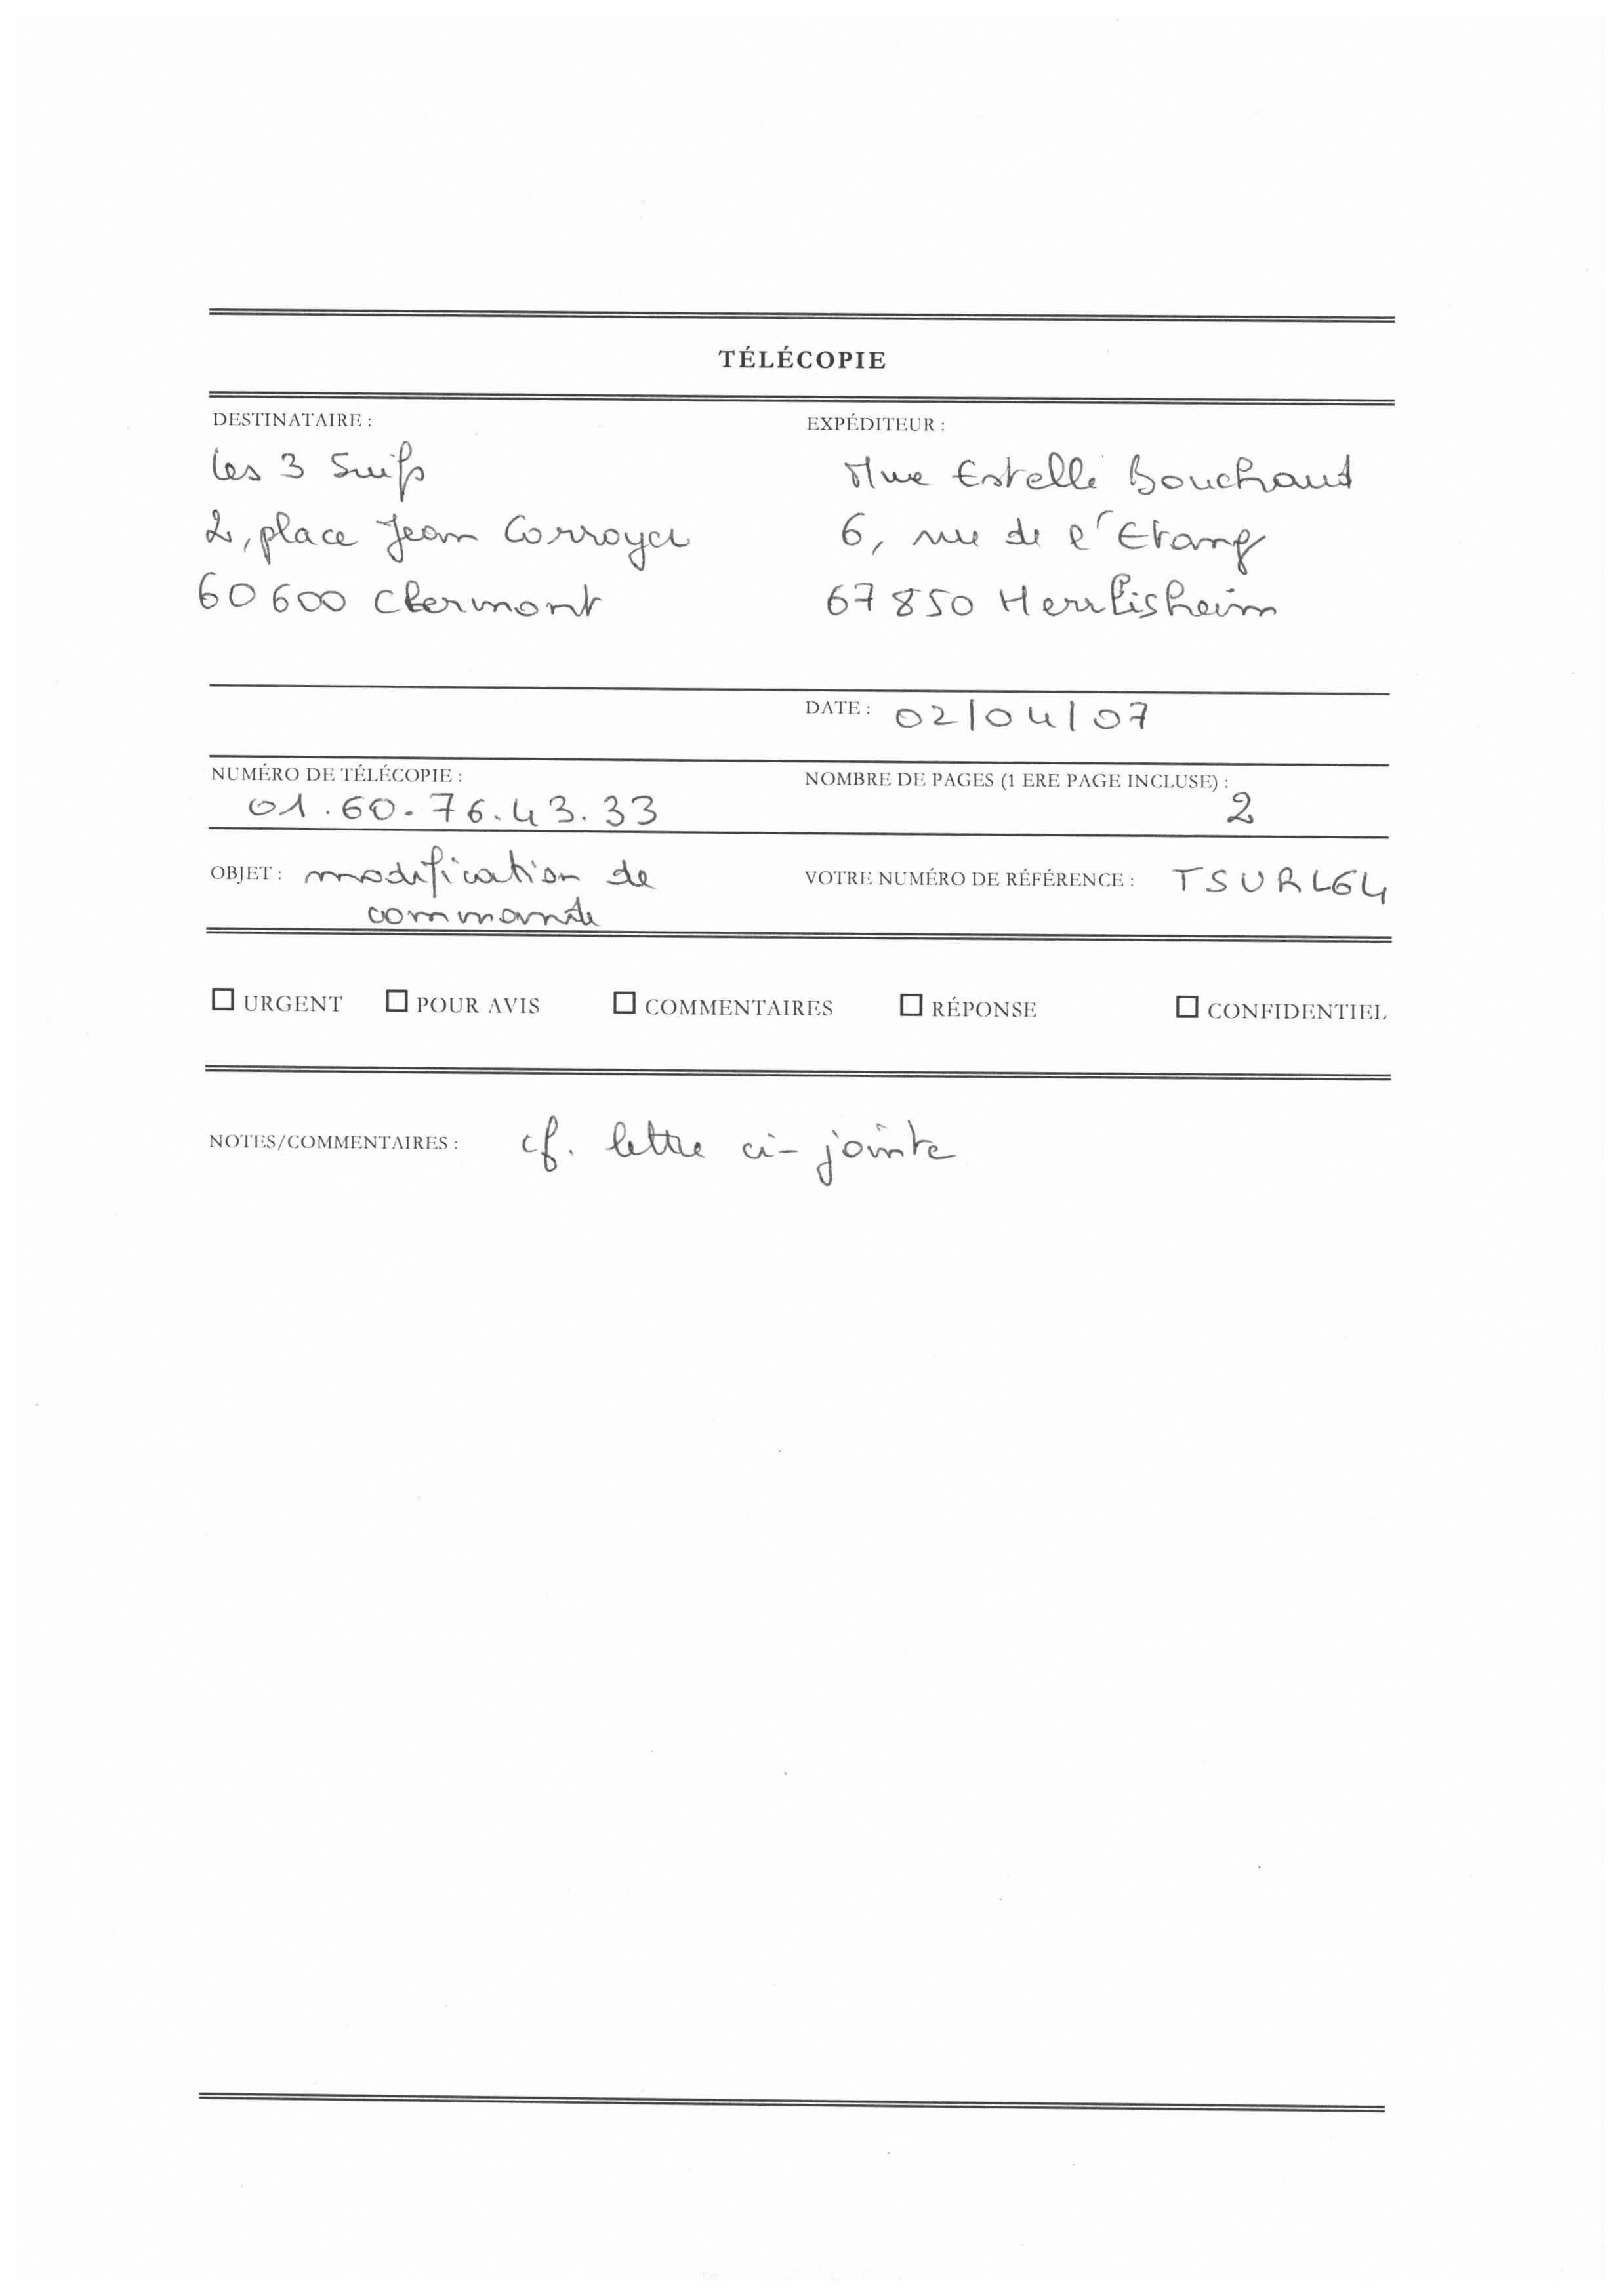 TÉLÉCOPIE
DESTINATAIRE :
Les 3 Suisses
2, place Jean Corroyer
60600 Clermont
EXPÉDITEUR :
Mme Estelle Bouchaud
6, rue de l'Etang
67850 Herrlisheim
DATE : 02/04/07
NUMÉRO DE TÉLÉCOPIE :
01.60.76.43.33
NOMBRE DE PAGES (1 ERE PAGE INCLUSE) :
2
OBJET : modification de
commande
VOTRE NUMÉRO DE RÉFÉRENCE : TSURL64
☐ URGENT ☐ POUR AVIS ☐ COMMENTAIRES ☐ RÉPONSE ☐ CONFIDENTIEL
NOTES/COMMENTAIRES : cf. lettre ci-jointe